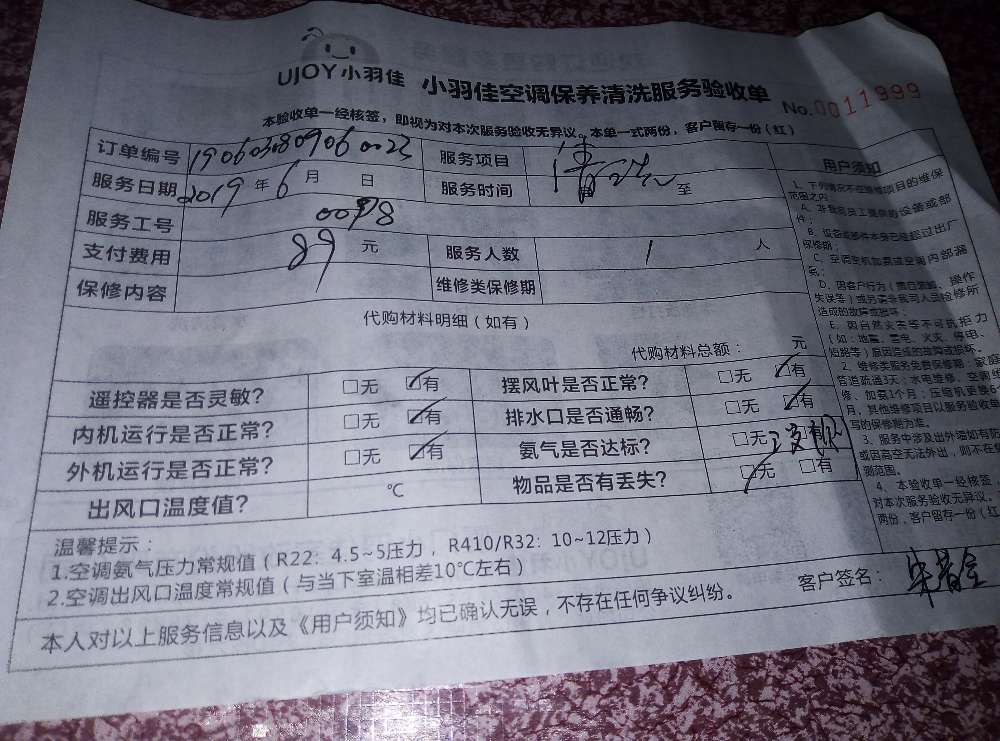 UJOY小羽佳 小羽佳空调保养清洗服务验收单 No.0011999
本验收单一经核签，即视为对本次服务验收无异议，本单一式两份，客户留存一份（红）
订单编号 服务项目 清洗
服务日期 2019年6月 日 服务时间 至
服务工号
支付费用 89 元 服务人数 1 人
保修内容 维修类保修期
代购材料明细（如有）
代购材料总额： 元
遥控器是否灵敏？ □无 □有 摆风叶是否正常？ □无 □有
内机运行是否正常？ □无 □有 排水口是否通畅？ □无 □有
外机运行是否正常？ □无 □有 氨气是否达标？ □无 □有
出风口温度值？ ℃ 物品是否有丢失？ □无 □有
温馨提示：
1.空调氨气压力常规值（R22：4.5~5压力，R410/R32：10~12压力）
2.空调出风口温度常规值（与当下室温相差10℃左右）
客户签名：
本人对以上服务信息以及《用户须知》均已确认无误，不存在任何争议纠纷。
用户须知
1、下列情况不在维修项目的维保
范围之内
A、非我司员工提供的设备或部
件；
B、设备或部件本身已经超过出厂
保修期；
C、空调整机加氨或空调内部漏
氨；
失误等）或另请非我司人员检修所
造成的故障或损坏；
E、因自然灾害等不可抗拒力
（如：地震、雷电、火灾、停电、
短路等）原因造成的故障或损坏。
2、维修类服务免费保修期：家庭
管道疏通3天；水电维修、空调维
月，其他维修项目以服务验收单
写的保修期为准。
或因高空无法外出，则不在
测范围。
4、本验收单一经核签，
对本次服务验收无异议。
两份，客户留存一份（红